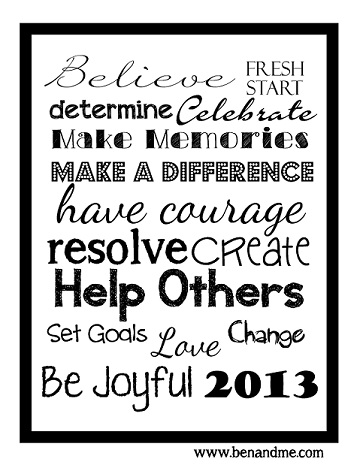 Believe FRESH START
determine Celebrate
Make Memories
MAKE A DIFFERENCE
have courage
resolve Create
Help Others
Set Goals Love Change
Be Joyful 2013
www.benandme.com